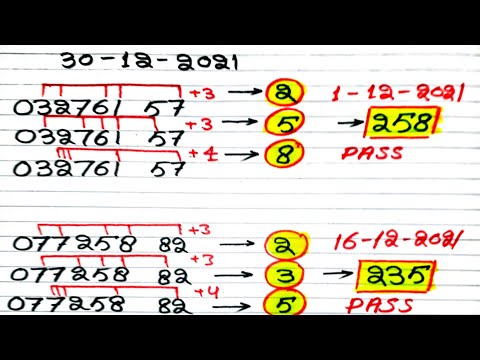 30-12-2021
032761 57 +3 → 2 1-12-2021
032761 57 +3 → 5 → 258
032761 57 +4 → 8 PASS
077258 82 +3 → 2 16-12-2021
077258 82 +3 → 3 → 235
077258 82 +4 → 5 PASS